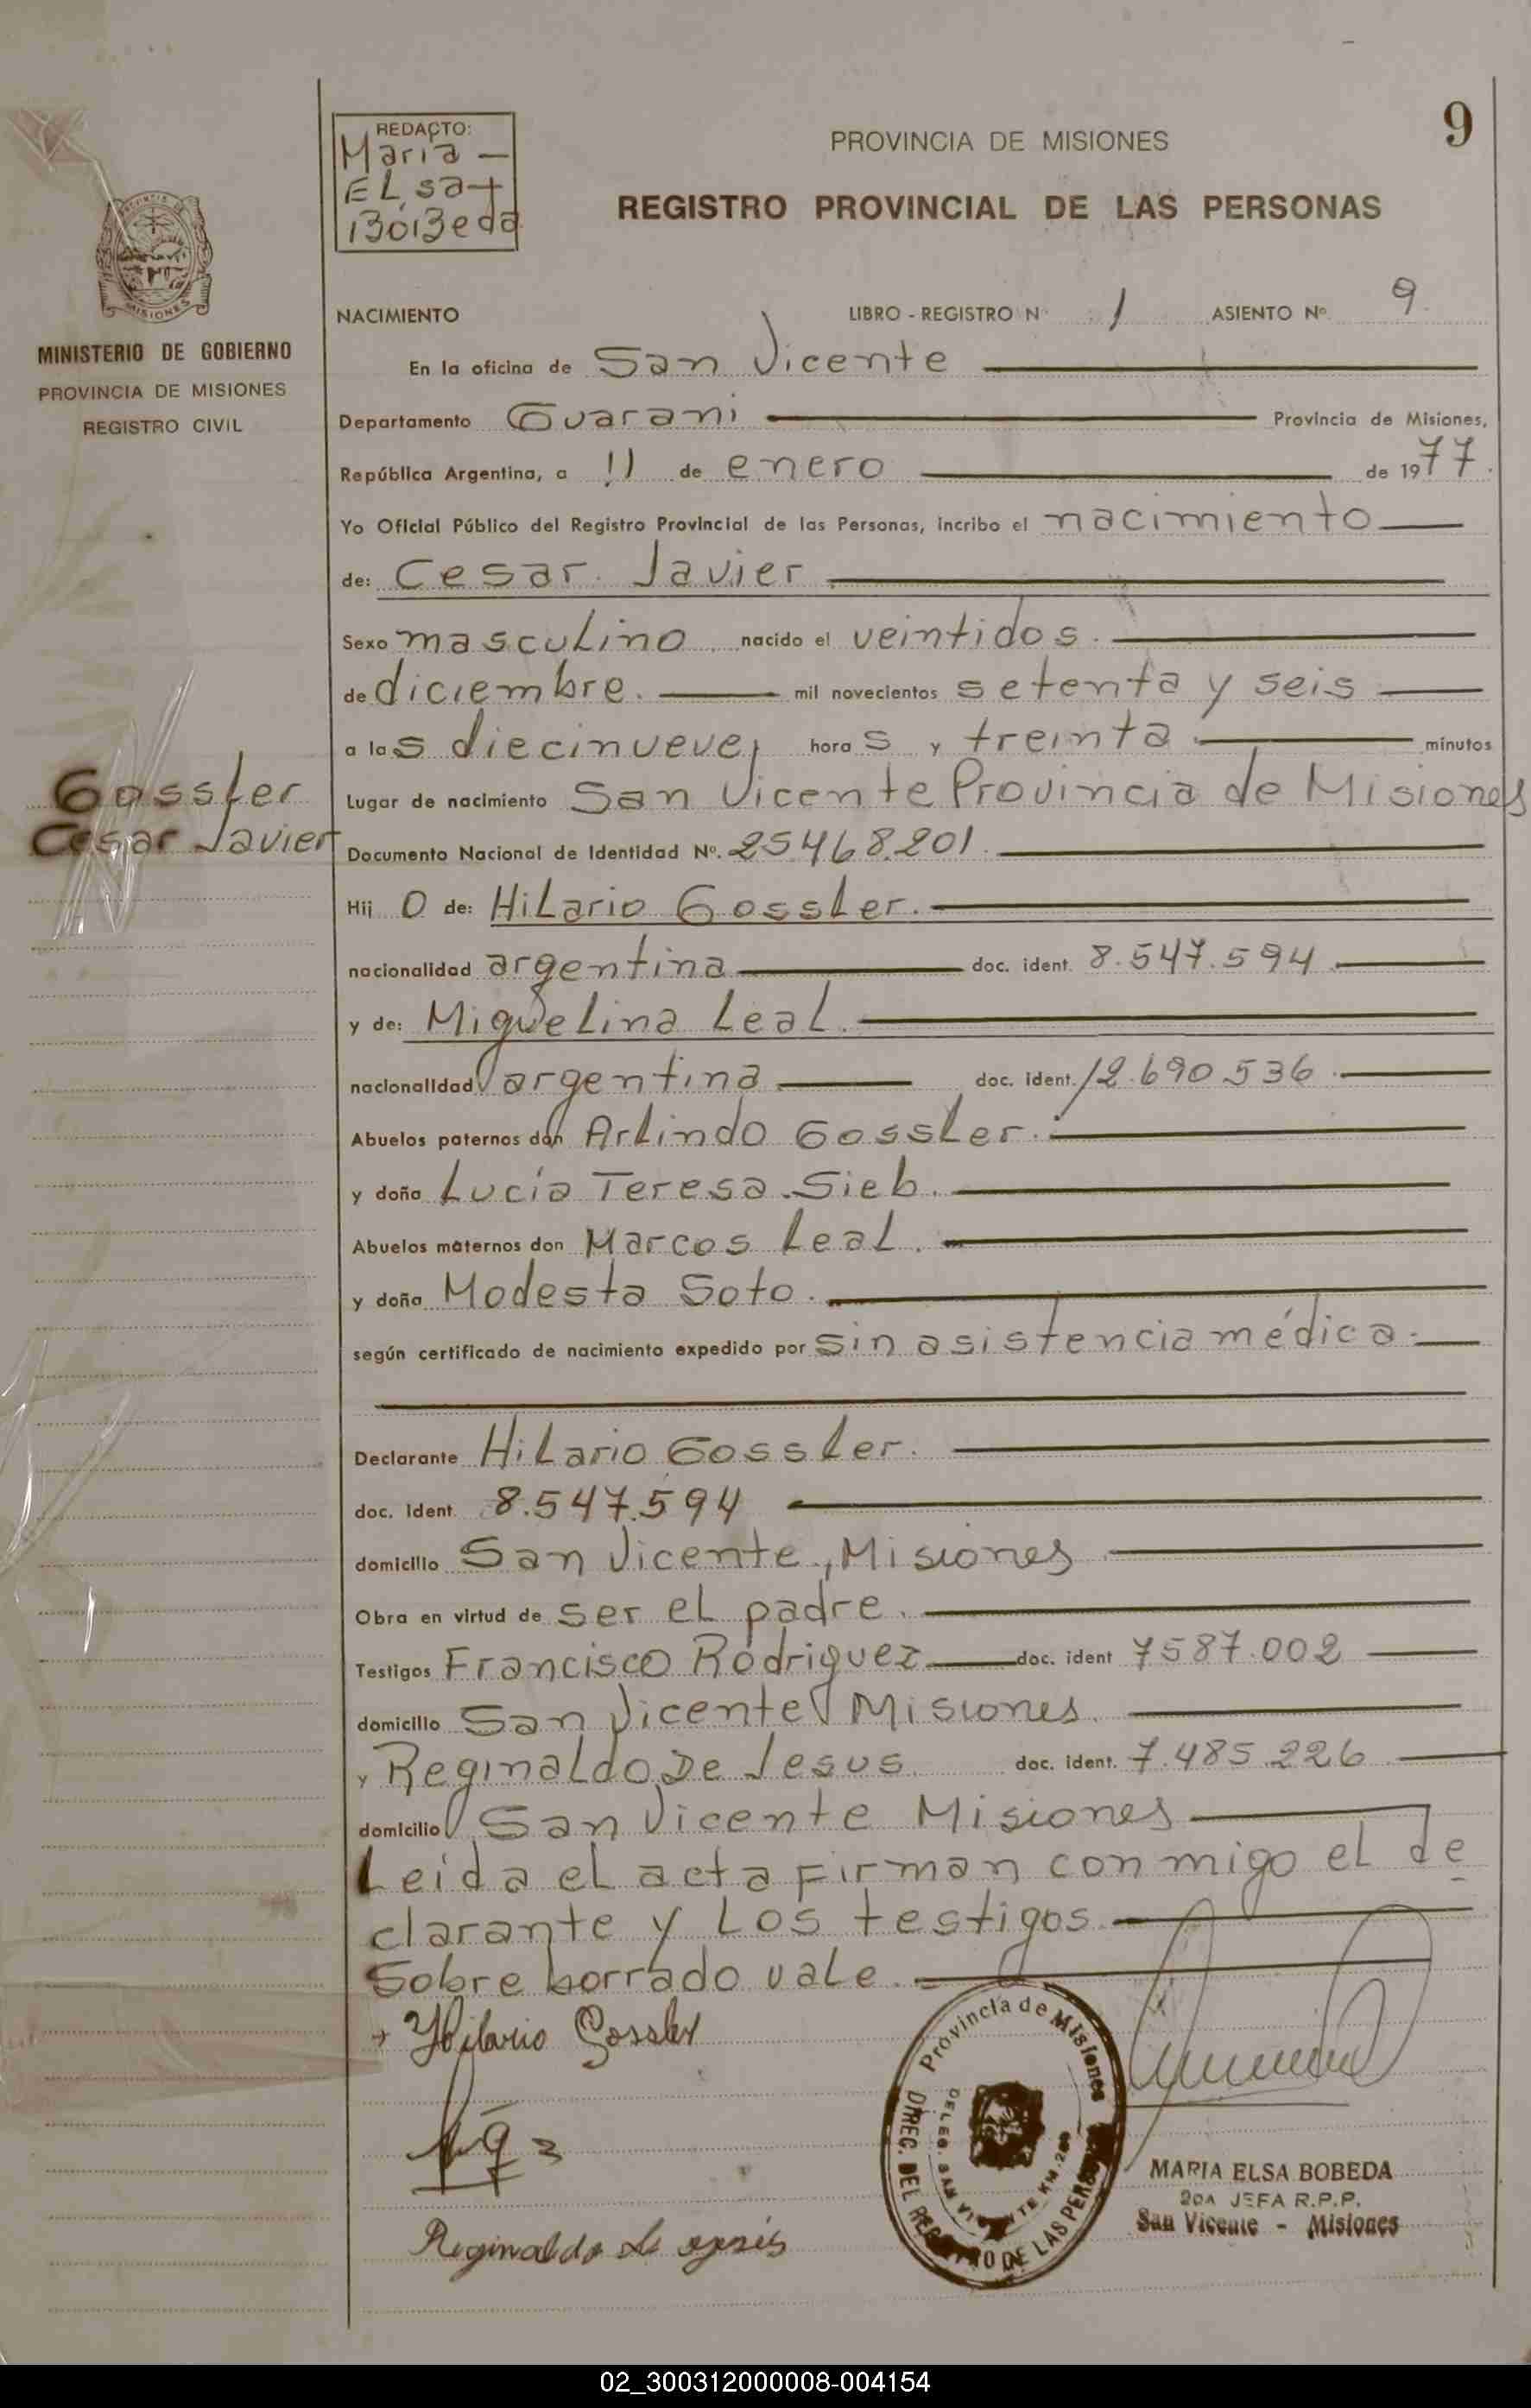 9
REDACTO:
Maria
ELsa
BoBeda
PROVINCIA DE MISIONES
REGISTRO PROVINCIAL DE LAS PERSONAS
MISIONES
MINISTERIO DE GOBIERNO
PROVINCIA DE MISIONES
REGISTRO CIVIL
NACIMIENTO LIBRO - REGISTRO N 1 ASIENTO Nº 9
En la oficina de San Vicente
Departamento Guarani Provincia de Misiones,
República Argentina, a 11 de enero de 1977.
Yo Oficial Público del Registro Provincial de las Personas, incribo el nacimiento
de: Cesar Javier
Sexo masculino nacido el veintidos.
de diciembre. mil novecientos setenta y seis
a las diecinueve, horas y treinta minutos
Gossler
Cesar Javier
Lugar de nacimiento San Vicente Provincia de Misiones
Documento Nacional de Identidad Nº. 25468.201
Hijo de: Hilario Gossler.
nacionalidad argentina doc. ident. 8.547.594
y de: Miguelina Leal.
nacionalidad argentina doc. ident. 12.690.536
Abuelos paternos don Arlindo Gossler.
y doña Lucía Teresa Sieb.
Abuelos maternos don Marcos Leal.
y doña Modesta Soto.
según certificado de nacimiento expedido por sin asistencia médica.
Declarante Hilario Gossler.
doc. ident. 8.547.594
domicilio San Vicente, Misiones
Obra en virtud de ser el padre.
Testigos Francisco Rodriguez doc. ident 7587.002
domicilio San Vicente Misiones.
y Reginaldo De Jesus doc. ident. 7.485.226
domicilio San Vicente Misiones
Leida el acta firman conmigo el de
clarante y los testigos.
Sobre borrado vale.
Hilario Gossler
Reginaldo de
Provincia de Misiones
DIREC. DEL REGISTRO DE LAS PERSO
DELEG. SAN VICENTE KM.
MARIA ELSA BOBEDA
20A JEFA R.P.P.
San Vicente - Misiones
02_300312000008-004154